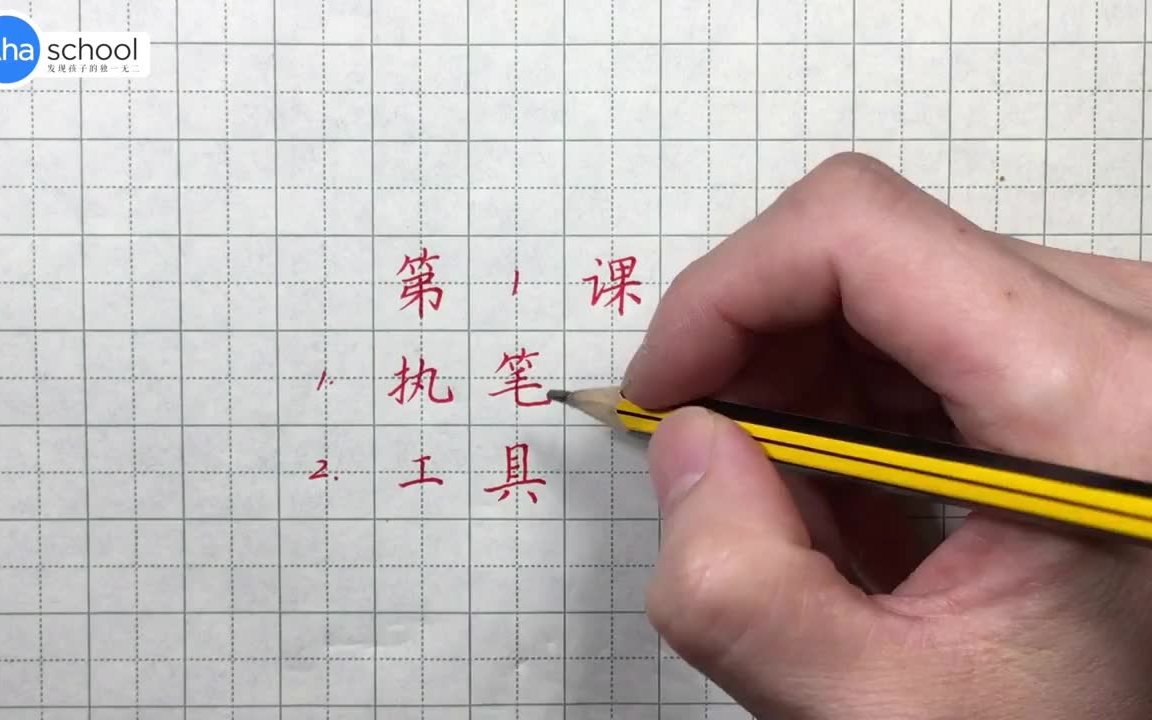 ha school
发现孩子的独一无二
第1课
1. 执笔
2. 工具